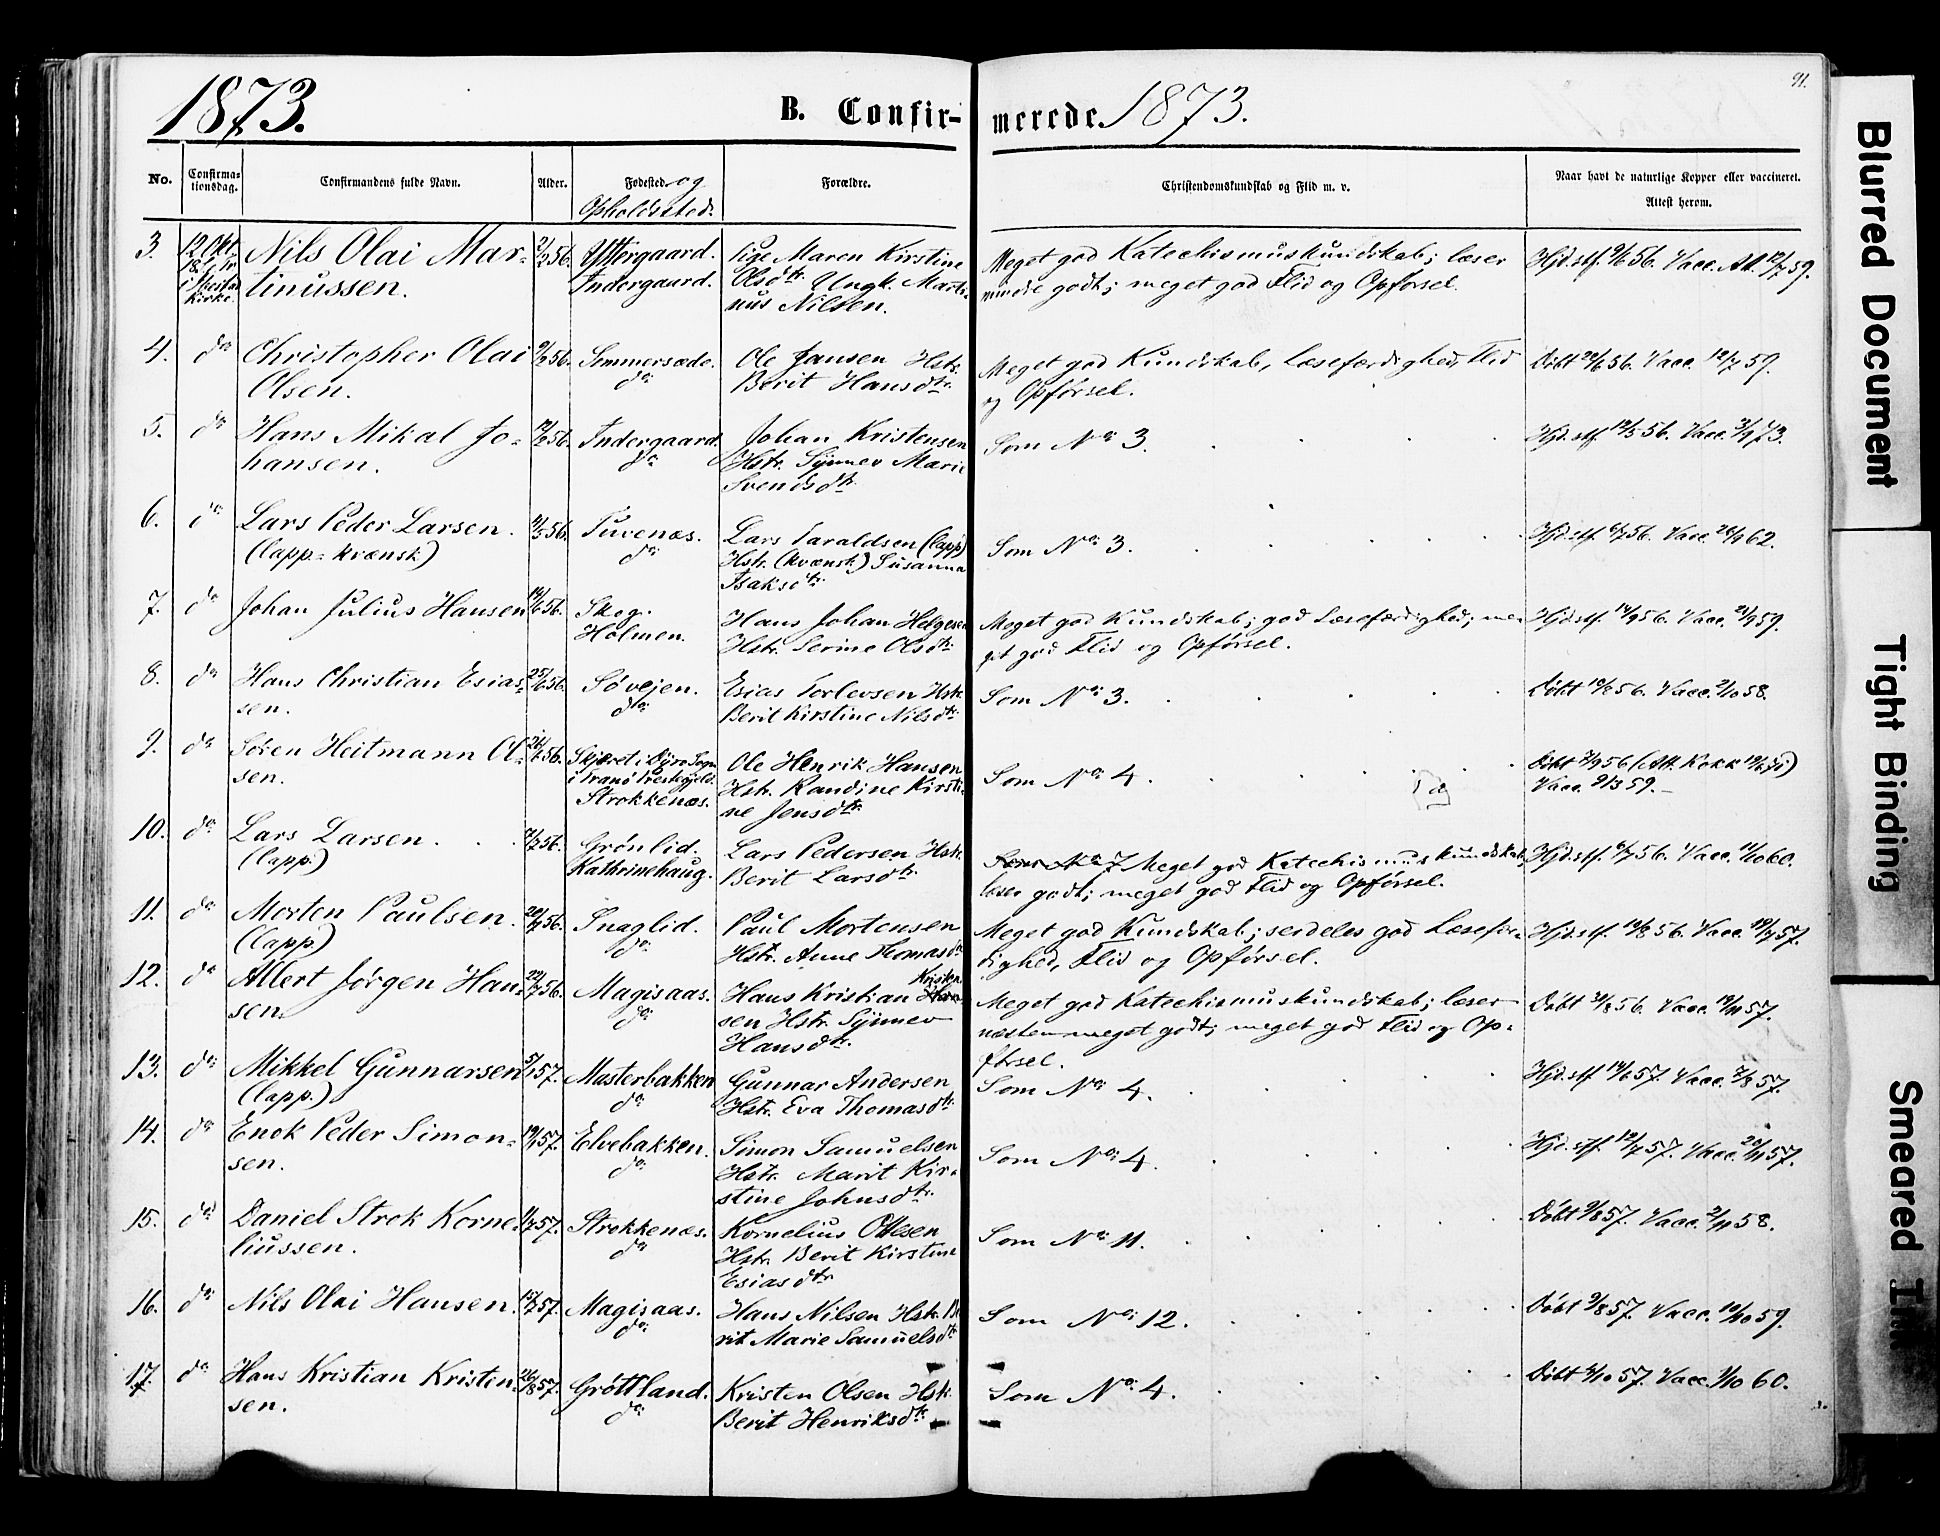 1873.
B. Confir-
merede. 1873.
91.
No.
Confirma-
tionsdag.
Confirmandens fulde Navn.
Alder.
Fødested og
Opholdssted.
Forældre.
Christendomskundskab og Flid m. v.
Naar havt de naturlige Kopper eller vaccineret.
Attest herom.
3. 12 Okt. Nils Olai Mar- 2/2 56. Yttergaard. Pige Maren Kirstine Meget god Katechismuskundskab; læser Hjd. stf. 9/6 56. Vacc. Att. 12/7 59.
tinussen. Indergaard. Olsdtr. Ungk. Marti- mindre godt; meget god Flid og Opførsel.
Kirke.
nus Nilsen.
4. do Christopher Olai 9/2 56. Sommersæde. Ole Jansen Hstr. Meget god Kundskab, Læsefærdighed, Flid Døbt 29/6 56. Vacc. 12/7 59.
Olsen. do Berit Hansdtr. og Opførsel.
5. do Hans Mikal Jo- 56. Indergaard. Johan Kristensen Som No 3. Hjd. stf. 12/5 56. Vacc. 3/9 73.
hansen. do Hstr. Synnev Marie
Svendsdtr.
6. do Lars Peder Larsen. 56. Tuvenæs. Lars Taraldsen (lapp) Som No 3. Hjd. stf. 6/7 56. Vacc. 62.
(lapp-kvænsk) do Hstr. (kvænsk) Susanna
Isaksdtr.
7. do Johan Julius Hansen 56. Skog. Hans Johan Helgesen Meget god Kundskab; god Læsefærdighed; me- Hjd. stf. 14/9 56. Vacc. 21/9 59.
Holmen. Hstr. Serine Olsdtr. get god Flid og Opførsel.
8. do Hans Christian Esias- 25/6 56. Søvejen. Esias Torlevsen Hstr. Som No 3. Døbt 56. Vacc. 2/10 58.
sen. do Berit Kirstine Nilsdtr.
9. do Søren Heitmann Ol- 56. Skjæret i Dyrø Sogn Ole Henrik Hansen Som No 4. Døbt 7/9 56 (Att. Kokk)
sen. i Tranø Prestegjeld. Hstr. Randine Kirsti- Vacc. 9/3 59.
Strokkenæs. ne Jensdtr.
10. do Lars Larsen. 7/7 56. Grønlid. Lars Pedersen Hstr. Som No 7 Meget god Katechismuskundskab; Hjd. stf. 6/7 56. Vacc. 11/10 60.
(lapp.) Kathrinehaug. Berit Larsdtr. læser godt; meget god Flid og Opførsel.
11. do Morten Paulsen. 20/7 56. Snaglid. Paul Mortensen Meget god Kundskab; serdeles god Læsefær- Hjd. stf. 10/8 56. Vacc. 19/7 57.
(lapp.) do Hstr. Anne Thomasdtr dighed, Flid og Opførsel.
12. do Allert Jørgen Han- 22/7 56. Magisaas. Hans Kristian Kristen- Meget god Katechismuskundskab; læser Døbt 31/8 56. Vacc. 19/11 57.
sen. do sen Hstr. Synnev næsten meget godt; meget god Flid og Op-
Hansdtr. førsel.
13. do Mikkel Gunnarsen 5/1 57. Masterbakken Gunnar Andersen Som No 4. Hjd. stf. 14/6 57. Vacc. 7/8 57.
(lapp.) do Hstr. Eva Thomasdtr.
14. do Enok Peder Simon- 19/1 57. Elvebakken. Simon Samuelsen Som No 4. Hjd. stf. 12/7 57. Vacc. 20/11 57.
sen. do Hstr. Marit Kir-
stine Johnsdtr.
15. do Daniel Strok Korne- 57. Strokkenæs. Kornelius Ottesen Som No 11. Døbt 9/8 57. Vacc. 2/11 58.
liussen. do Hstr. Berit Kirstine
Esiasdtr.
16. do Nils Olai Hansen. 15/7 57. Magisaas. Hans Nilsen Hstr. Be- Som No 12. Døbt 9/8 57. Vacc. 10/10 59.
do rit Marie Samuelsdtr
17. do Hans Kristian Kristen- 26/8 57. Grøttland. Kristen Olsen Hstr. Som No 4. Døbt 4/10 57. Vacc. 1/10 60.
sen. do Berit Henriksdtr.
Blurred Document
Tight Binding
Smeared Ink